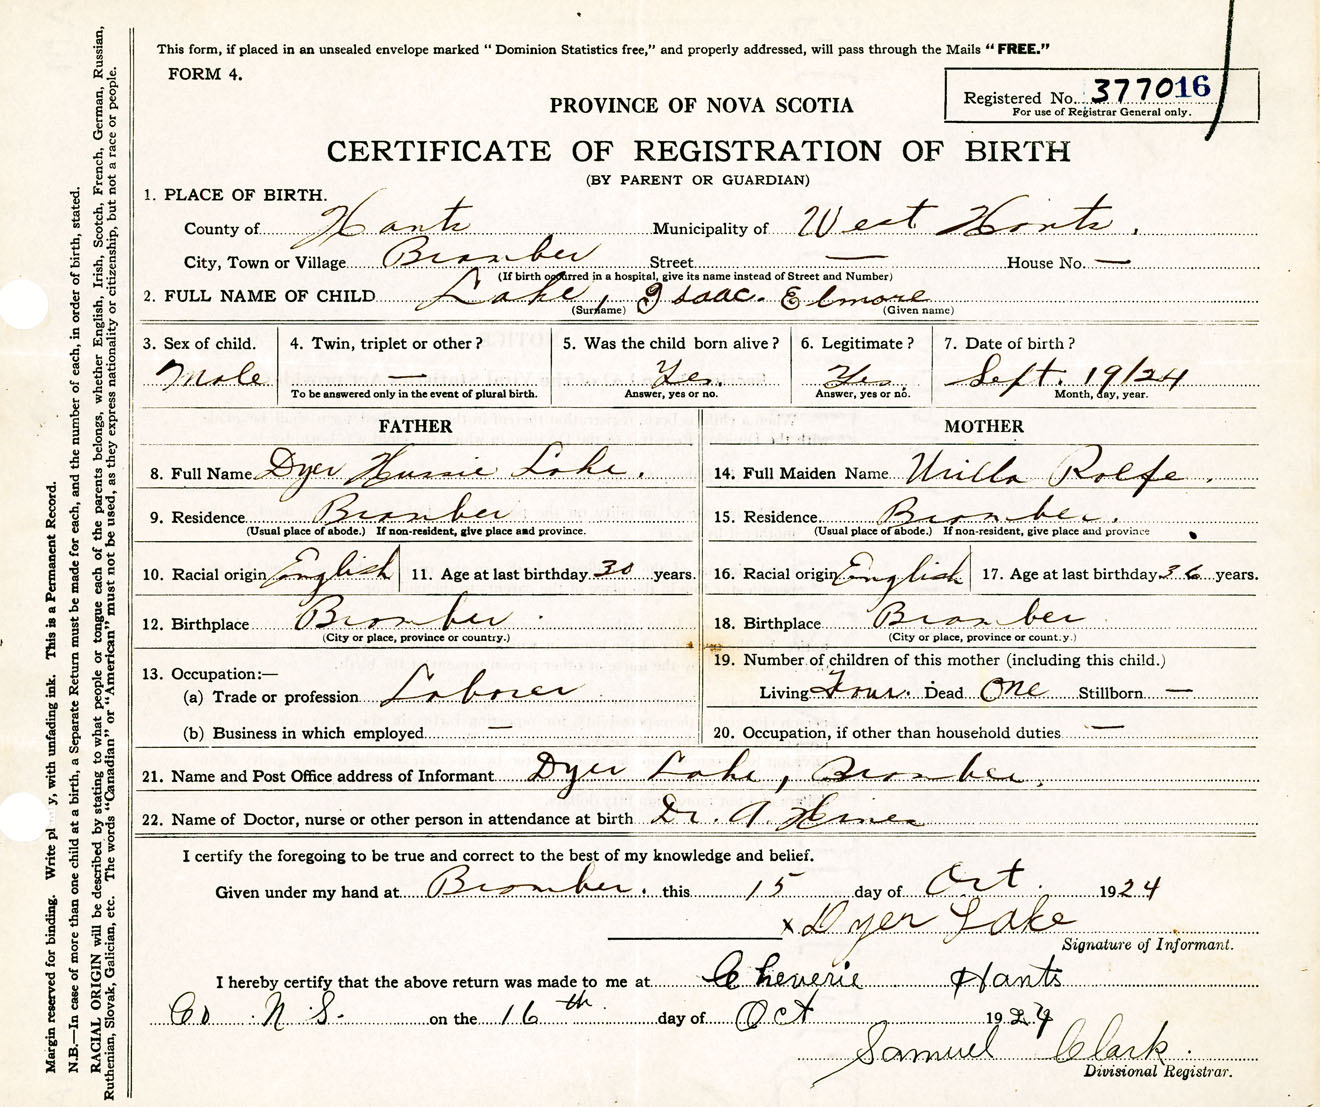 This form, if placed in an unsealed envelope marked “Dominion Statistics free,” and properly addressed, will pass through the Mails “FREE.”
FORM 4.
Registered No. 377016
For use of Registrar General only.
PROVINCE OF NOVA SCOTIA
CERTIFICATE OF REGISTRATION OF BIRTH
(BY PARENT OR GUARDIAN)
1. PLACE OF BIRTH.
County of Hants Municipality of West Hants.
City, Town or Village Bramber Street — House No. —
(If birth occurred in a hospital, give its name instead of Street and Number)
2. FULL NAME OF CHILD Lake, Isaac. Elmore
(Surname) (Given name)
3. Sex of child. 4. Twin, triplet or other? 5. Was the child born alive? 6. Legitimate? 7. Date of birth?
Male — Yes. Yes. Sept. 19/24
To be answered only in the event of plural birth. Answer, yes or no. Answer, yes or no. Month, day, year.
FATHER MOTHER
8. Full Name Dyer Hussie Lake. 14. Full Maiden Name Urilla Rolfe.
9. Residence Bramber 15. Residence Bramber.
(Usual place of abode.) If non-resident, give place and province. (Usual place of abode.) If non-resident, give place and province
10. Racial origin English 11. Age at last birthday 30 years. 16. Racial origin English 17. Age at last birthday 36 years.
12. Birthplace Bramber. 18. Birthplace Bramber
(City or place, province or country.) (City or place, province or country.)
13. Occupation:— 19. Number of children of this mother (including this child.)
(a) Trade or profession Laborer Living Four. Dead One Stillborn —
(b) Business in which employed — 20. Occupation, if other than household duties —
21. Name and Post Office address of Informant Dyer Lake, Bramber.
22. Name of Doctor, nurse or other person in attendance at birth Dr. A.
I certify the foregoing to be true and correct to the best of my knowledge and belief.
Given under my hand at Bramber. this 15 day of Oct. 1924
x Dyer Lake
Signature of Informant.
I hereby certify that the above return was made to me at Cheverie Hants
Co. N S. on the 16th day of Oct 1924
Samuel Clark.
Divisional Registrar.
Margin reserved for binding. Write plainly, with unfading ink. This is a Permanent Record.
N.B.—In case of more than one child at a birth, a Separate Return must be made for each, and the number of each, in order of birth, stated.
RACIAL ORIGIN will be described by stating to what people or tongue each of the parents belongs, whether English, Irish, Scotch, French, German, Russian,
Ruthenian, Slovak, Galician, etc. The words “Canadian” or “American” must not be used, as they express nationality or citizenship, but not a race or people.